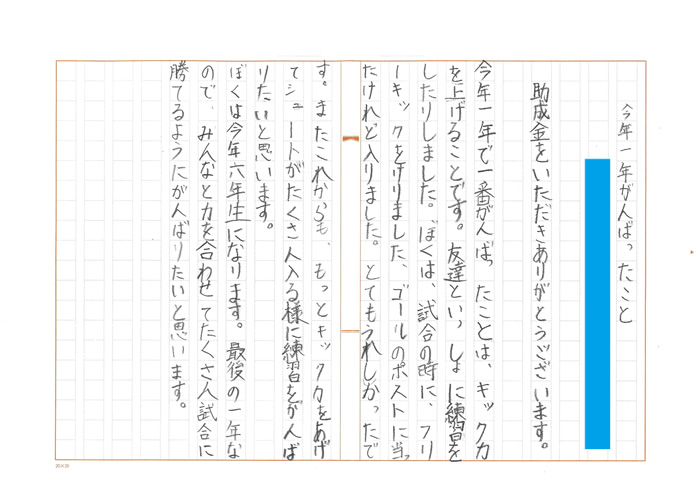 今年一年がんばったこと
助成金をいただきありがとうございます。
今年一年で一番がんばったことは、キック力
を上げることです。友達といっしょに練習を
したりしました。ぼくは、試合の時に、フリ
ーキックをけりました、ゴールのポストに当っ
たけれど入りました。とてもうれしかったで
す。またこれからも、もっとキック力をあげ
てシュートがたくさん入る様に練習をがんば
りたいと思います。
ぼくは今年六年生になります。最後の一年な
ので、みんなと力を合わせてたくさん試合に
勝てるようにがんばりたいと思います。